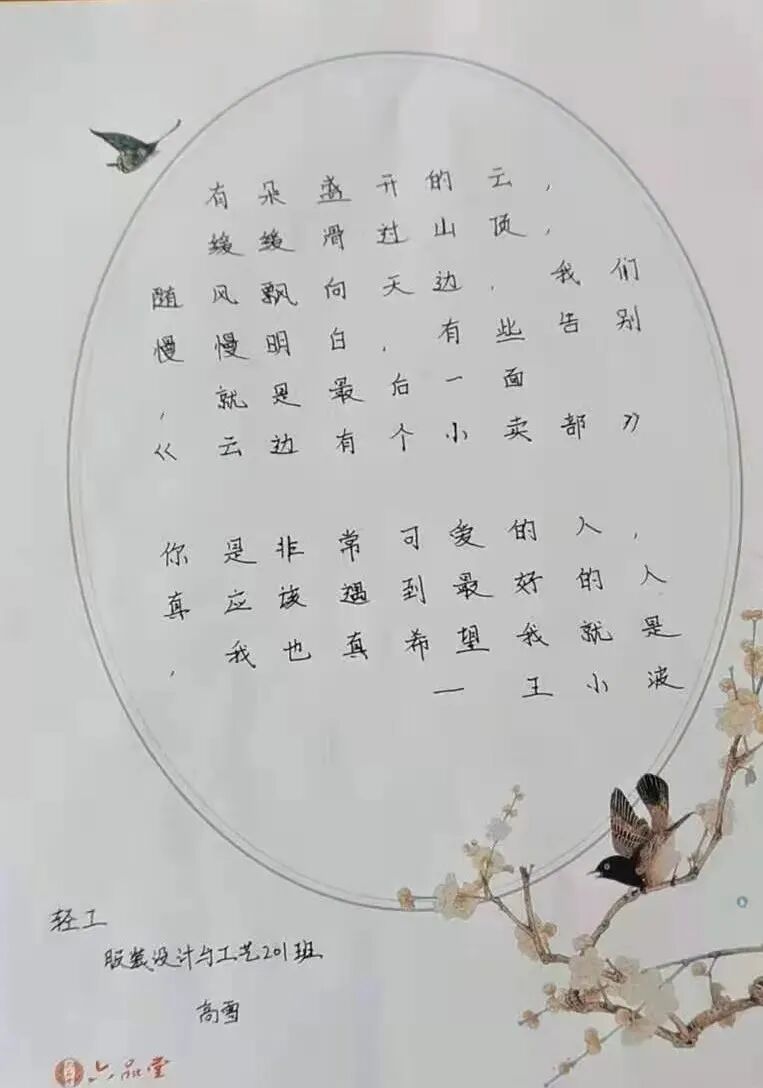 有朵盛开的云，
缓缓滑过山顶，
随风飘向天边．我们
慢慢明白．有些告别
，就是最后一面
《云边有个小卖部》
你是非常可爱的人，
真应该遇到最好的人
，我也真希望我就是
— 王小波
轻工
服装设计与工艺201班
高雪
六品堂